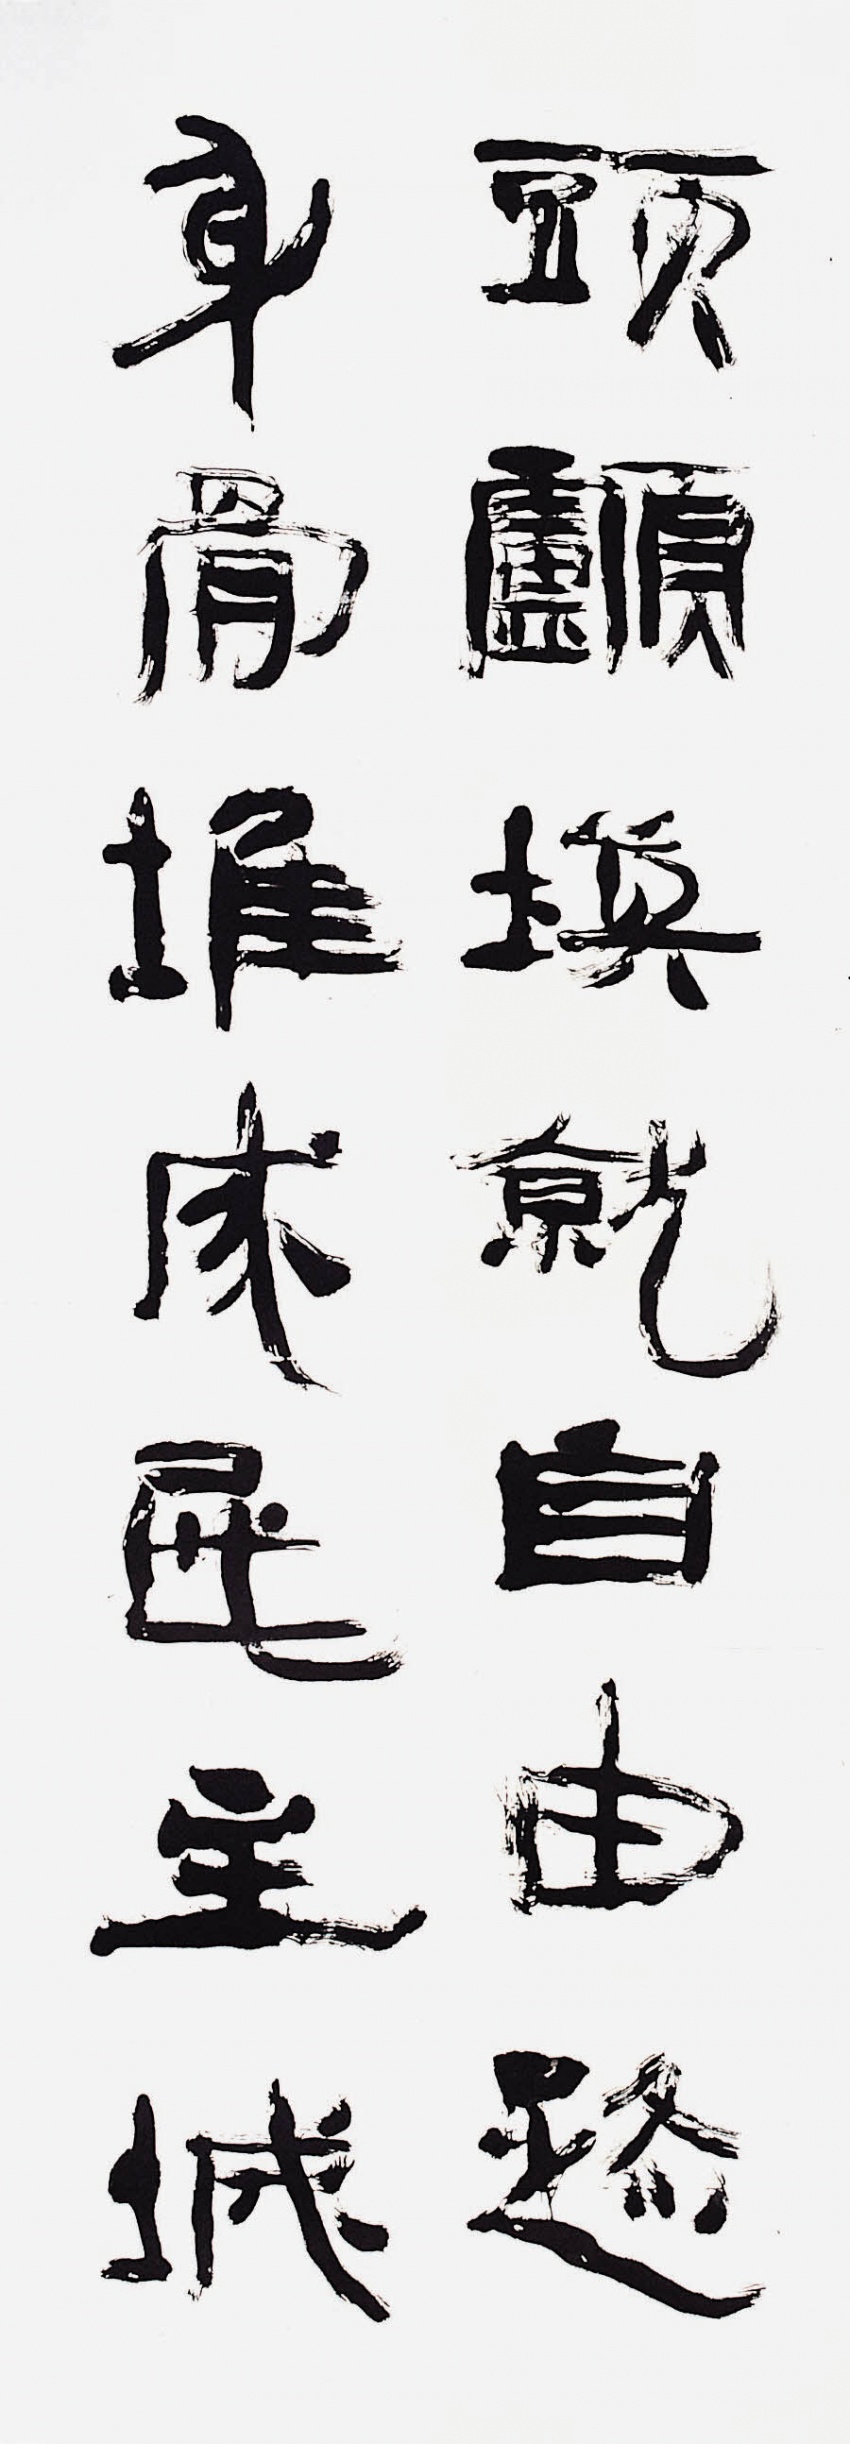 頭顱填就自由趂
身骨堆成民主城